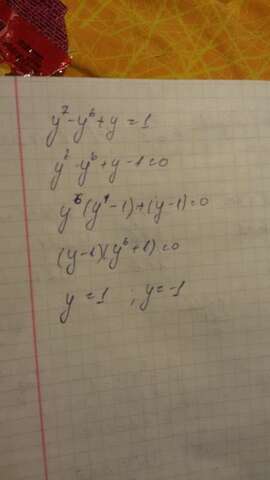 y⁷-y⁶+y=1
y⁷-y⁶+y-1=0
y⁶(y¹-1)+(y-1)=0
(y-1)(y⁶+1)=0
y=1 ; y=-1